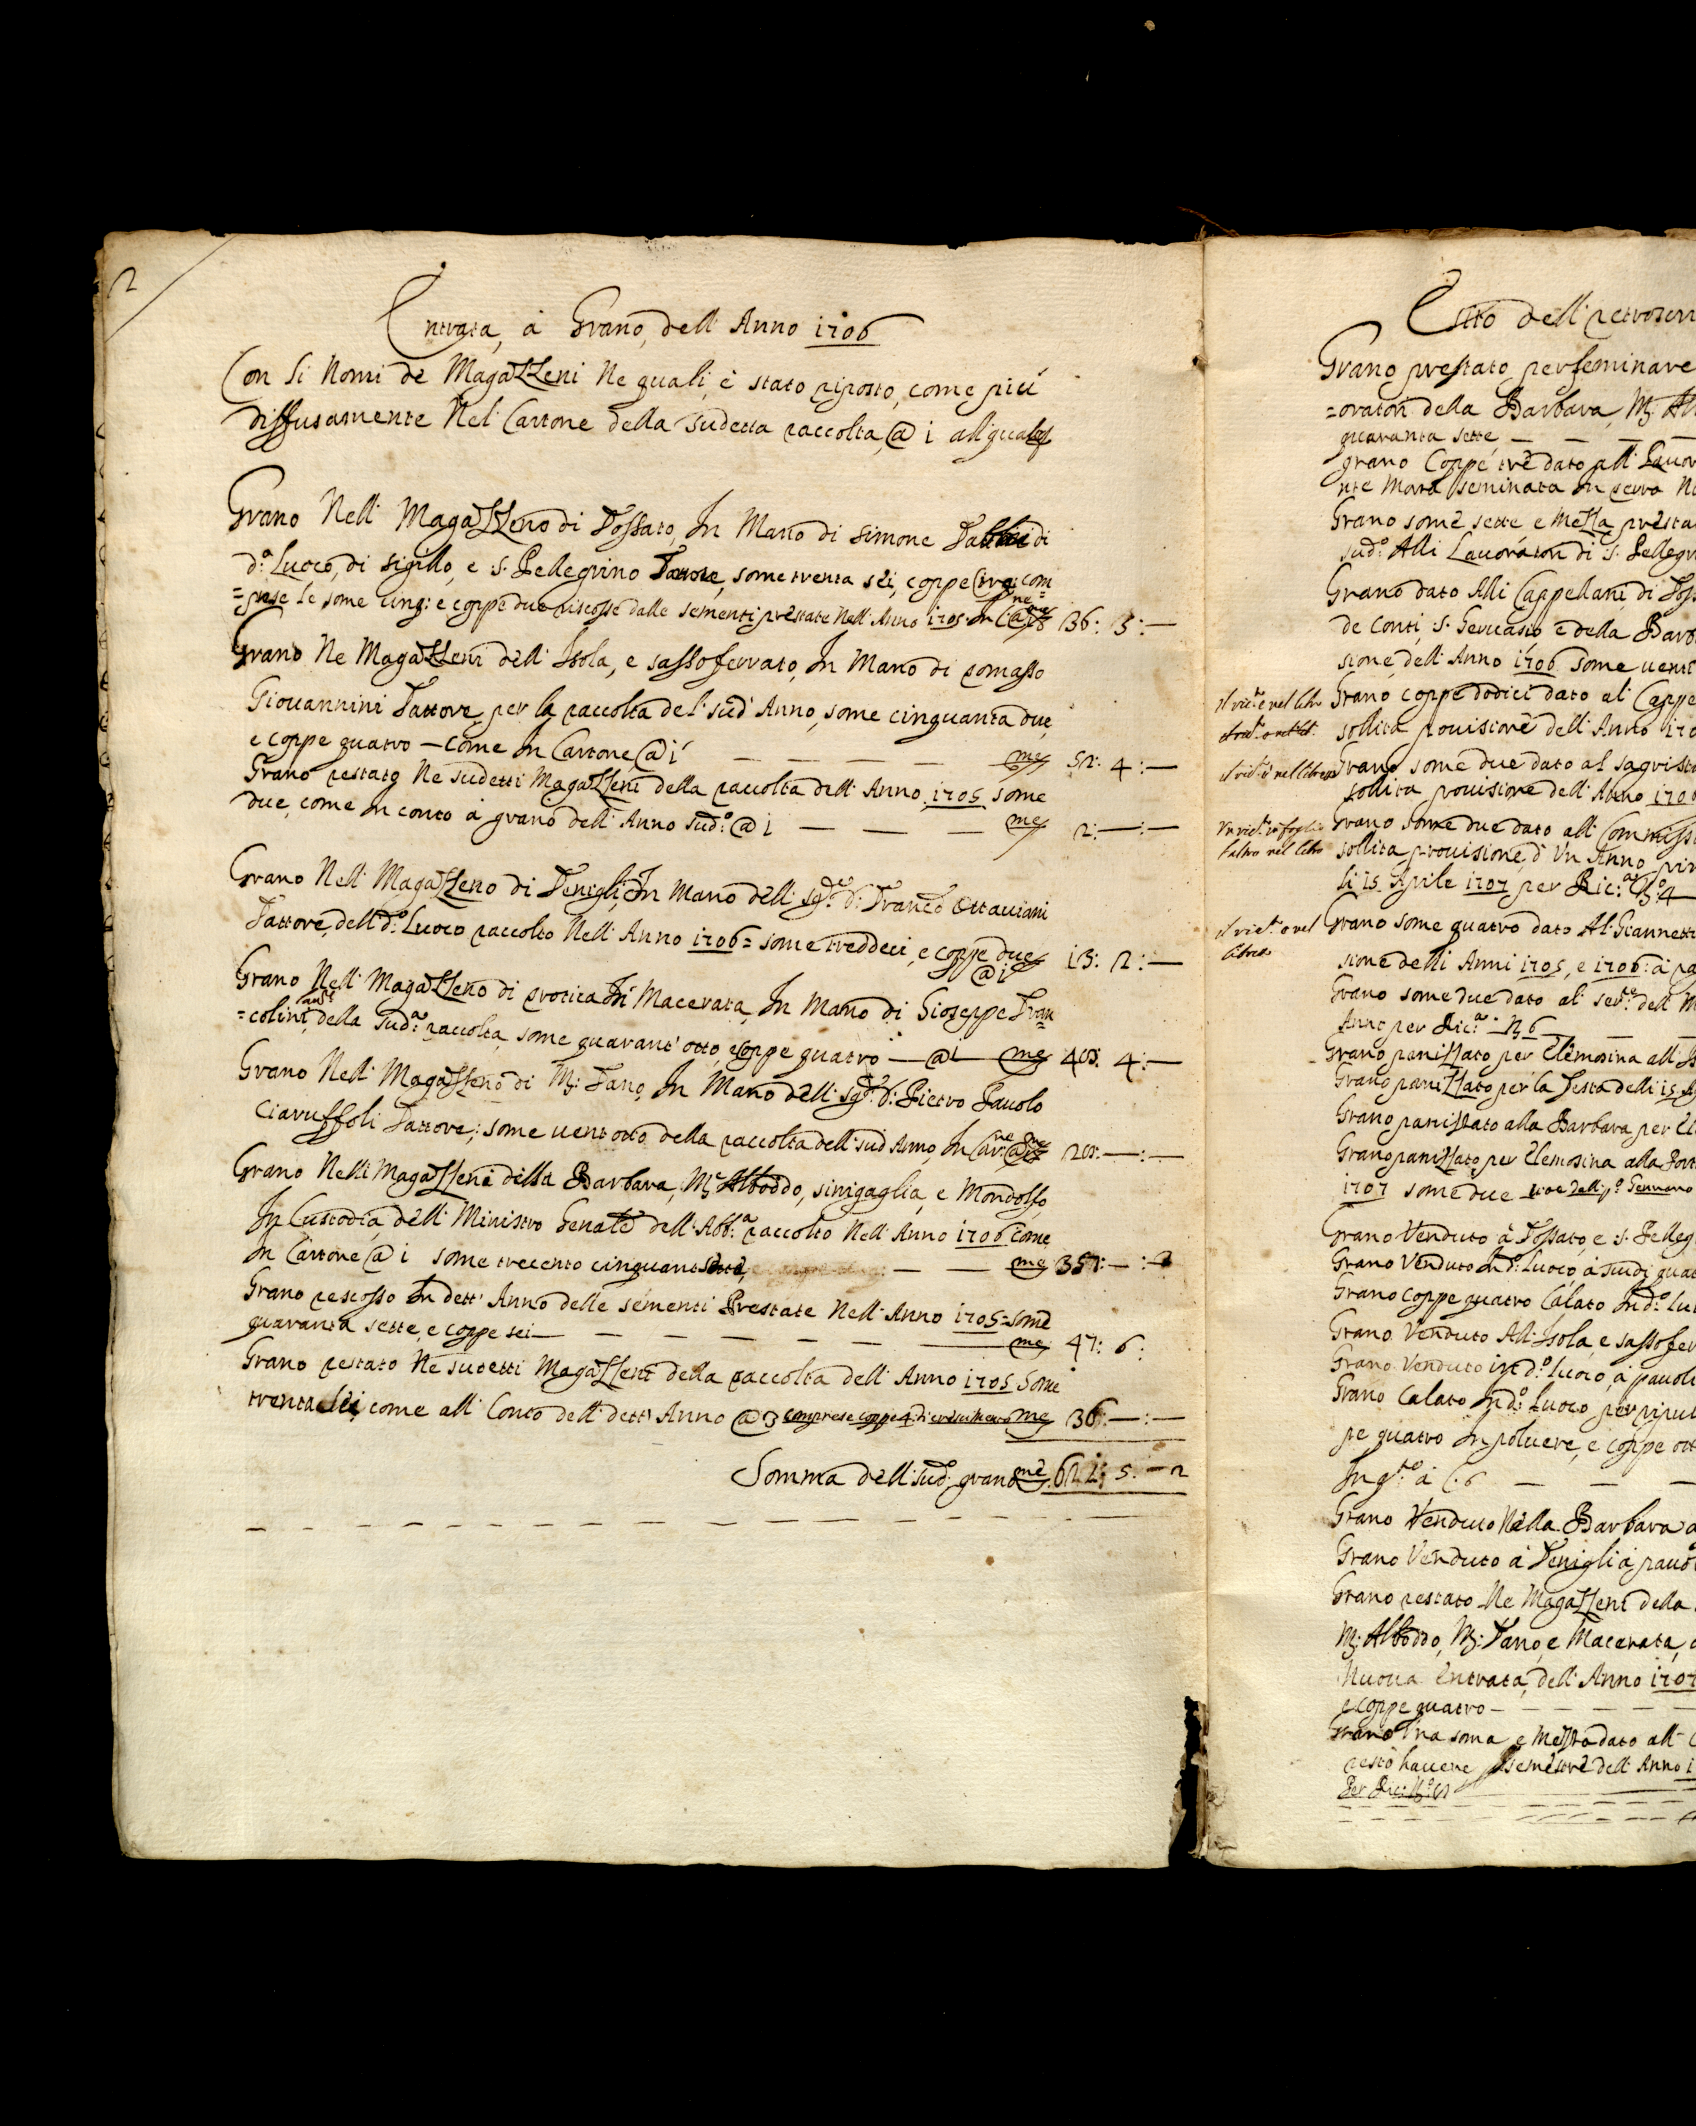 2
Entrata, à Grano, dell' Anno 1706
Con li Nomi de Magazzeni Ne quali, è stato riposto, come più
diffusamente Nel Cartone della sudetta raccolta, @ 1 all quale
Grano Nelli Magazzeno di Fossato, In Mano di Simone di
d.º Luoco, di sigillo, e S. Pellegrino Fattore, some trenta sei, coppe tre: com
=prese le some cinq: e coppe due riscosse dalle sementi prestate Nell' Anno 1705. In 36: 3: —
Grano Ne Magazzeni dell' Isola, e sassoferrato, In Mano di Tomasso
Giouannini Fattore, per la raccolta del sud.º Anno, some cinquanta due,
e coppe quatro — Come In Cartone, @ 1 — — — — — me 52: 4: —
Grano restato Ne sudetti Magazzeni della raccolta dell' Anno 1705 some
due, come in conto à grano dell' Anno sud.º @ 1 — — — me 2: —: —
Grano Nell' Magazzeno di Fenigli, In Mano delli Sg.re D: Franc.º Ottauiani
Fattore, dell d.º Luoco raccolto Nell' Anno 1706 = some treddeci, e coppe due 13: 2: —
@ 1
Grano Nell' Magazzeno di In Macerata, In Mano di Gioseppe Fran
=colini, della sud.ª raccolta, some quarant'otto, e coppe quatro — @ 1 — me 48: 4: —
Grano Nell' Magazzeno di M: Fano, In Mano dell Sg.re D: Pietro Pauolo
Ciaruffoli Fattore; some uentotto della raccolta dell sud Anno, In Car.ne 28: —: —
Grano Nelli Magazzeni della Barbara, M: Alboddo, sinigaglia, e Mondolfo,
In Custodia dell' Ministro Genale dell' Abb.ª raccolto Nell' Anno 1706 come
In Cartone @ 1 some trecento cinquantsette, — — me 357: —:
Grano rescosso In dett' Anno delle sementi Prestate Nell' Anno 1705 = some
quaranta sette, e coppe sei — — — — — — me 47: 6:
Grano restato Ne sudetti Magazzeni della raccolta dell' Anno 1705 some
trenta sei, come all' Conto dell dett' Anno @ 3 comprese coppe 4 me 36: —: —
Somma dell sud.º grano me 622: 5: — 2
Esito dell' retroscri
Grano prestato per seminare
=oratori della Barbara, M: Al
quaranta sette — — — —
grano Coppe tre dato all' Lauor
nte Mora seminata in terra N
Grano some sette e Mezza presta
sud.º Alli Lauoratori di S. Pellegr
Grano dato Alli Cappellani, di Foss
de Conti, S. Geruasio e della Barb
sione, dell' Anno 1706 some uenti
il ric.to è nel libro Grano coppe dodici dato al Cappe
sollita prouisione dell' Anno 170
il ric.to è nel libro Grano some due dato al sagrist
sollita prouisione dell' Anno 1706
Un ric.to in foglio Grano some due dato all Commiss
l'altro nel libro sollita prouisione, d'Un Anno,
li 15 Aprile 1707 per Ric.ª N.º 4
Grano some quatro dato Al Giannetti
sione delli Anni 1705, e 1706: à
Grano some due dato al ser.te dell' M
Anno per Ric.ª N 6
Grano panizzato per Elemosina all' Is
Grano panizzato per la Festa delli 15 A
Grano panizzato alla Barbara per El
Grano panizzato per Elemosina alla Port
1707 some due Gennaro
Grano Venduto à Fossato, e S. Pelleg
Grano Venduto In d.º Luoco, à quat
Grano coppe quatro Calato In d.º Lu
Grano Venduto All' Isola, e sassofer
Grano Venduto in d.º Luoco, à pauoli
Grano Calato In d.º Luoco per ripul
pe quatro In poluere, e coppe ott
In q.to à C. 6 — — —
Grano Venduto Nella Barbara a
Grano Venduto à Fenigli à pauol
Grano restato Ne Magazzeni della
M: Alboddo, M: Fano, e Macerata,
Nuoua Entrata, dell' Anno 1707
e coppe quatro — — — — —
Grano Una soma e Mezza dato all
resto hauere semestre dell' Anno 1
Per Ric: N.º